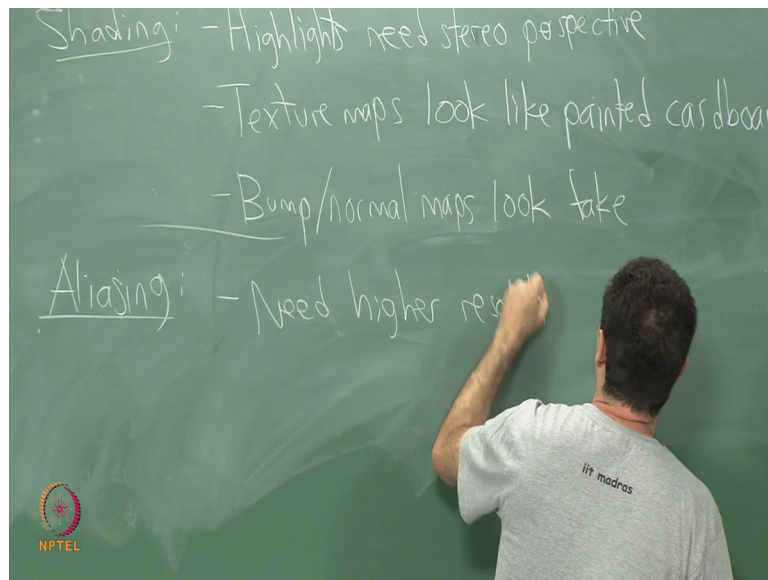 Shading: - Highlights need stereo perspective
- Texture maps look like painted cardboa
- Bump/normal maps look fake
Aliasing: - Need higher res
iit madras
NPTEL